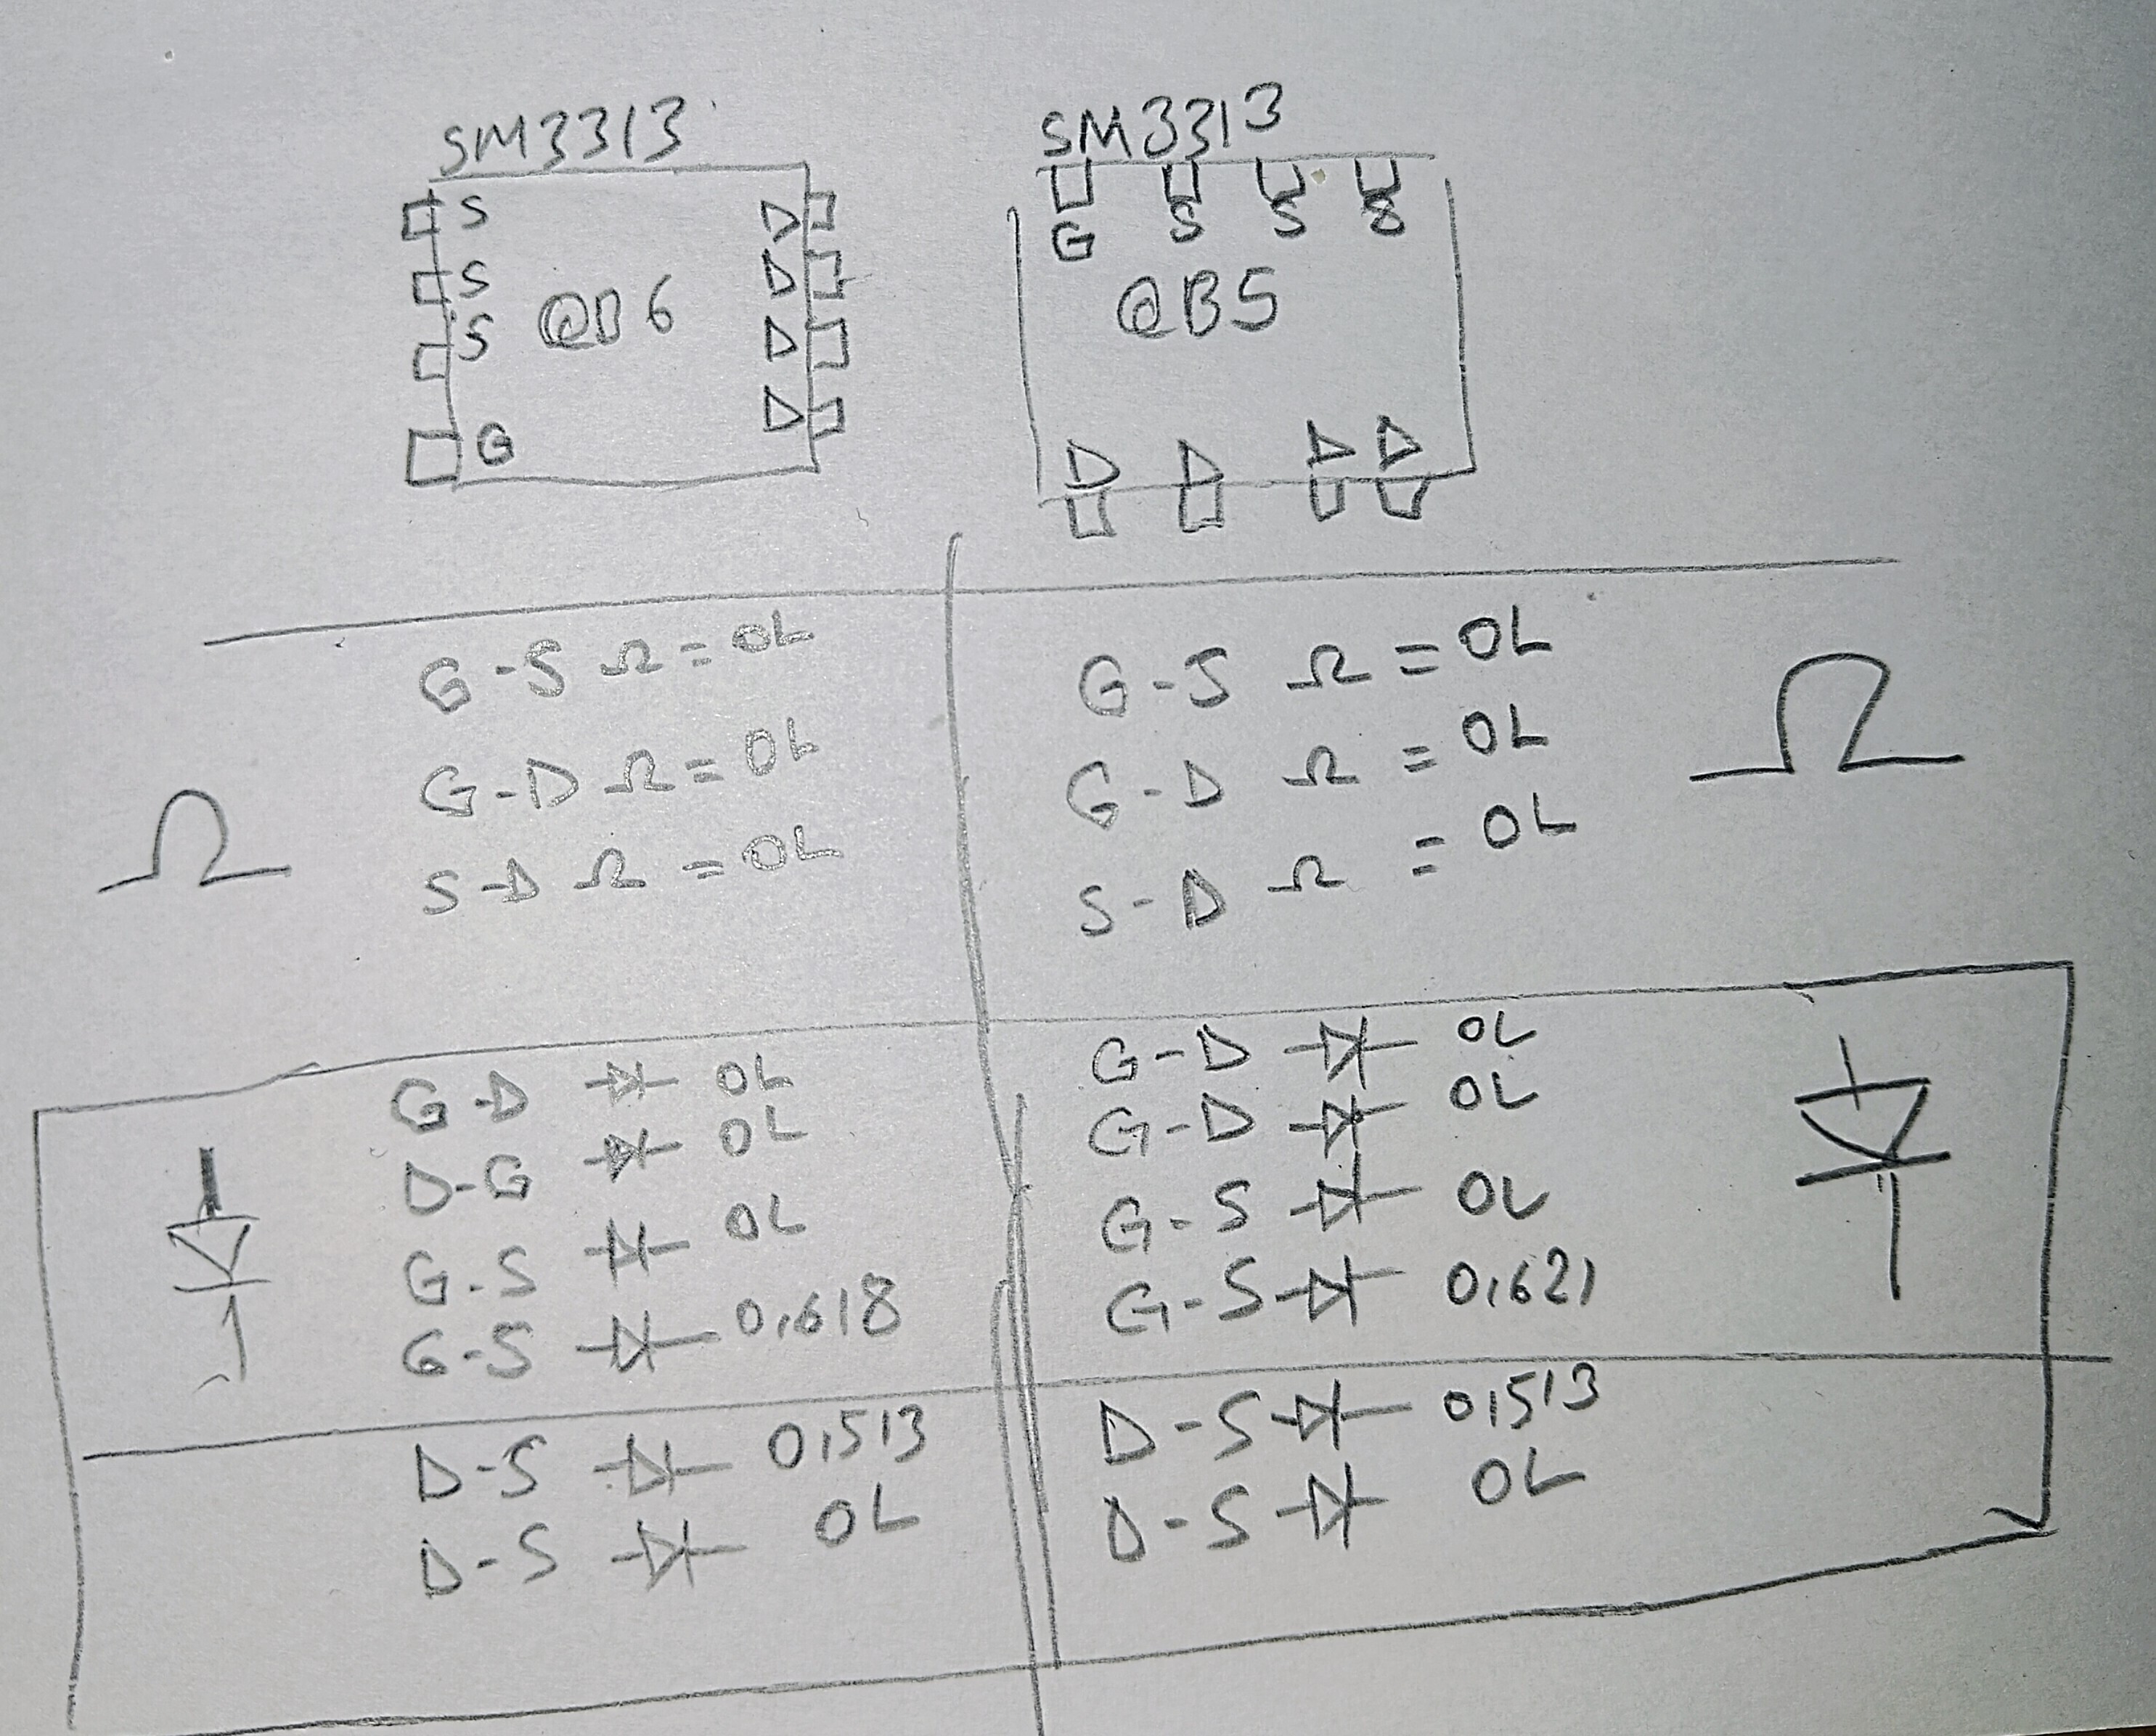 SM3313
S
S
S
G
@B6
D
D
D
D
SM3313
G S S S
@B5
D D D D
Ω
G-S Ω = OL
G-D Ω = OL
S-D Ω = OL
G-S Ω = OL
G-D Ω = OL
S-D Ω = OL
Ω
G-D OL
D-G OL
G-S OL
G-S 0,618
D-S 0,513
D-S OL
G-D OL
G-D OL
G-S OL
G-S 0,621
D-S 0,513
D-S OL